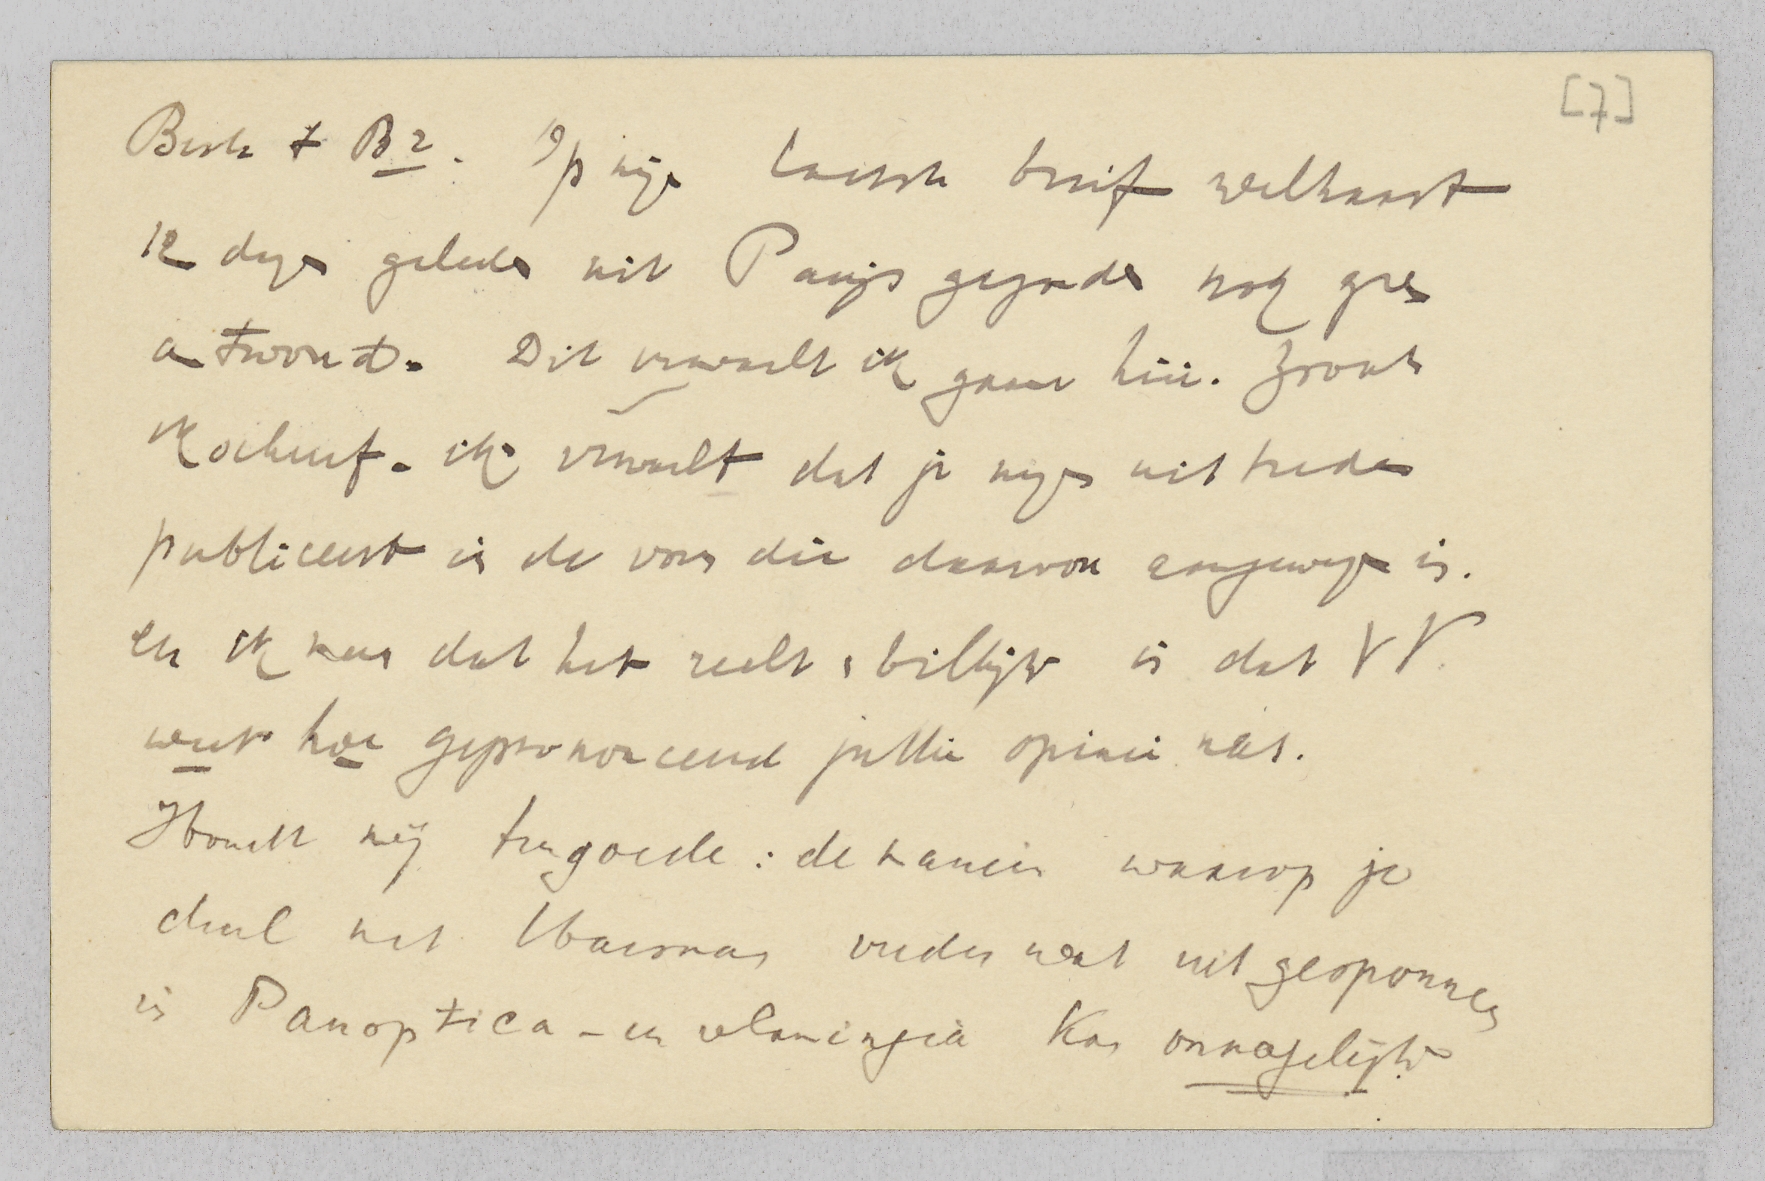 [7]
Beste + B2. Op mijn laatste brief welhaast
12 dagen geleden uit Parijs gezonden nog geen
antwoord. Dit verwacht ik gaarne hier. Zooals
ik schreef. ik verwacht dat je mijn uittreden
publiceert in de vorm die daarvoor aangewezen is.
en ik meen dat het recht & billijk is dat VV.
weet hoe geprononceerd jullie opinie was.
Houdt mij ten goede: de manier waarop je
deel met verder wat uitgesponnen
in Panoptica - en vlamingia kan onmogelijk